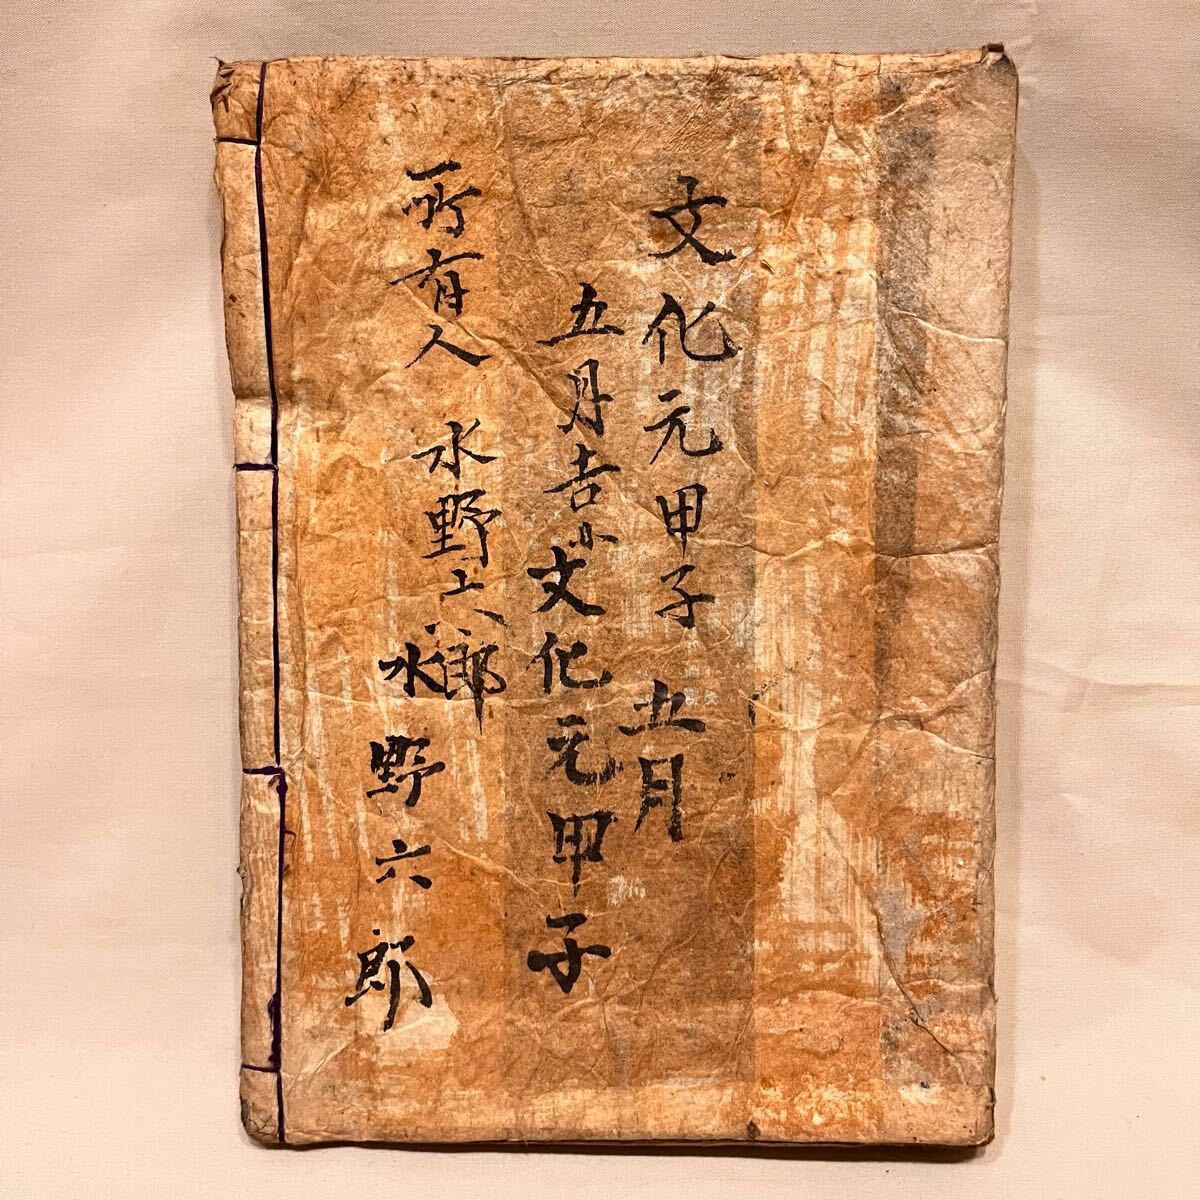 文化元甲子 五月
五月吉小文化元甲子
所有人 水野六郎
水野六郎